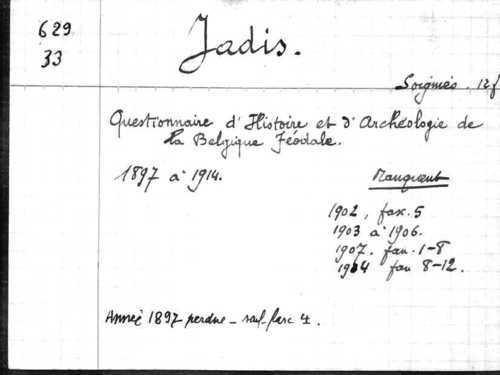 629
33
Jadis.
Soignies. 12f
Questionnaire d'Histoire et d'Archéologie de
la Belgique Féodale.
1897 à 1914.
Manquent
1902, fax. 5
1903 à 1906.
1907. fax. 1-8
1914 fax 8-12.
Année 1897 perdue - sauf fasc 4.